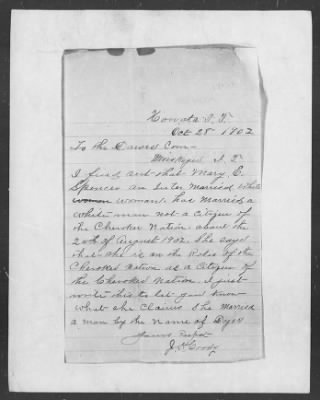 Nowata I.T.
Oct 28 1902
To the Dawes Com-
Muskogee I.T.
I find out that Mary E.
Spencer an Inter married White
woman woman, has married a
white man not a citizen of
the Cherokee Nation about the
20th of August 1902. She says
that she is on the Roles of the
Cherokee Nation as a Citizen of
the Cherokee Nation. I just
write this to let you know
what she claims She married
a man by the name of Dyer
Yours Respct